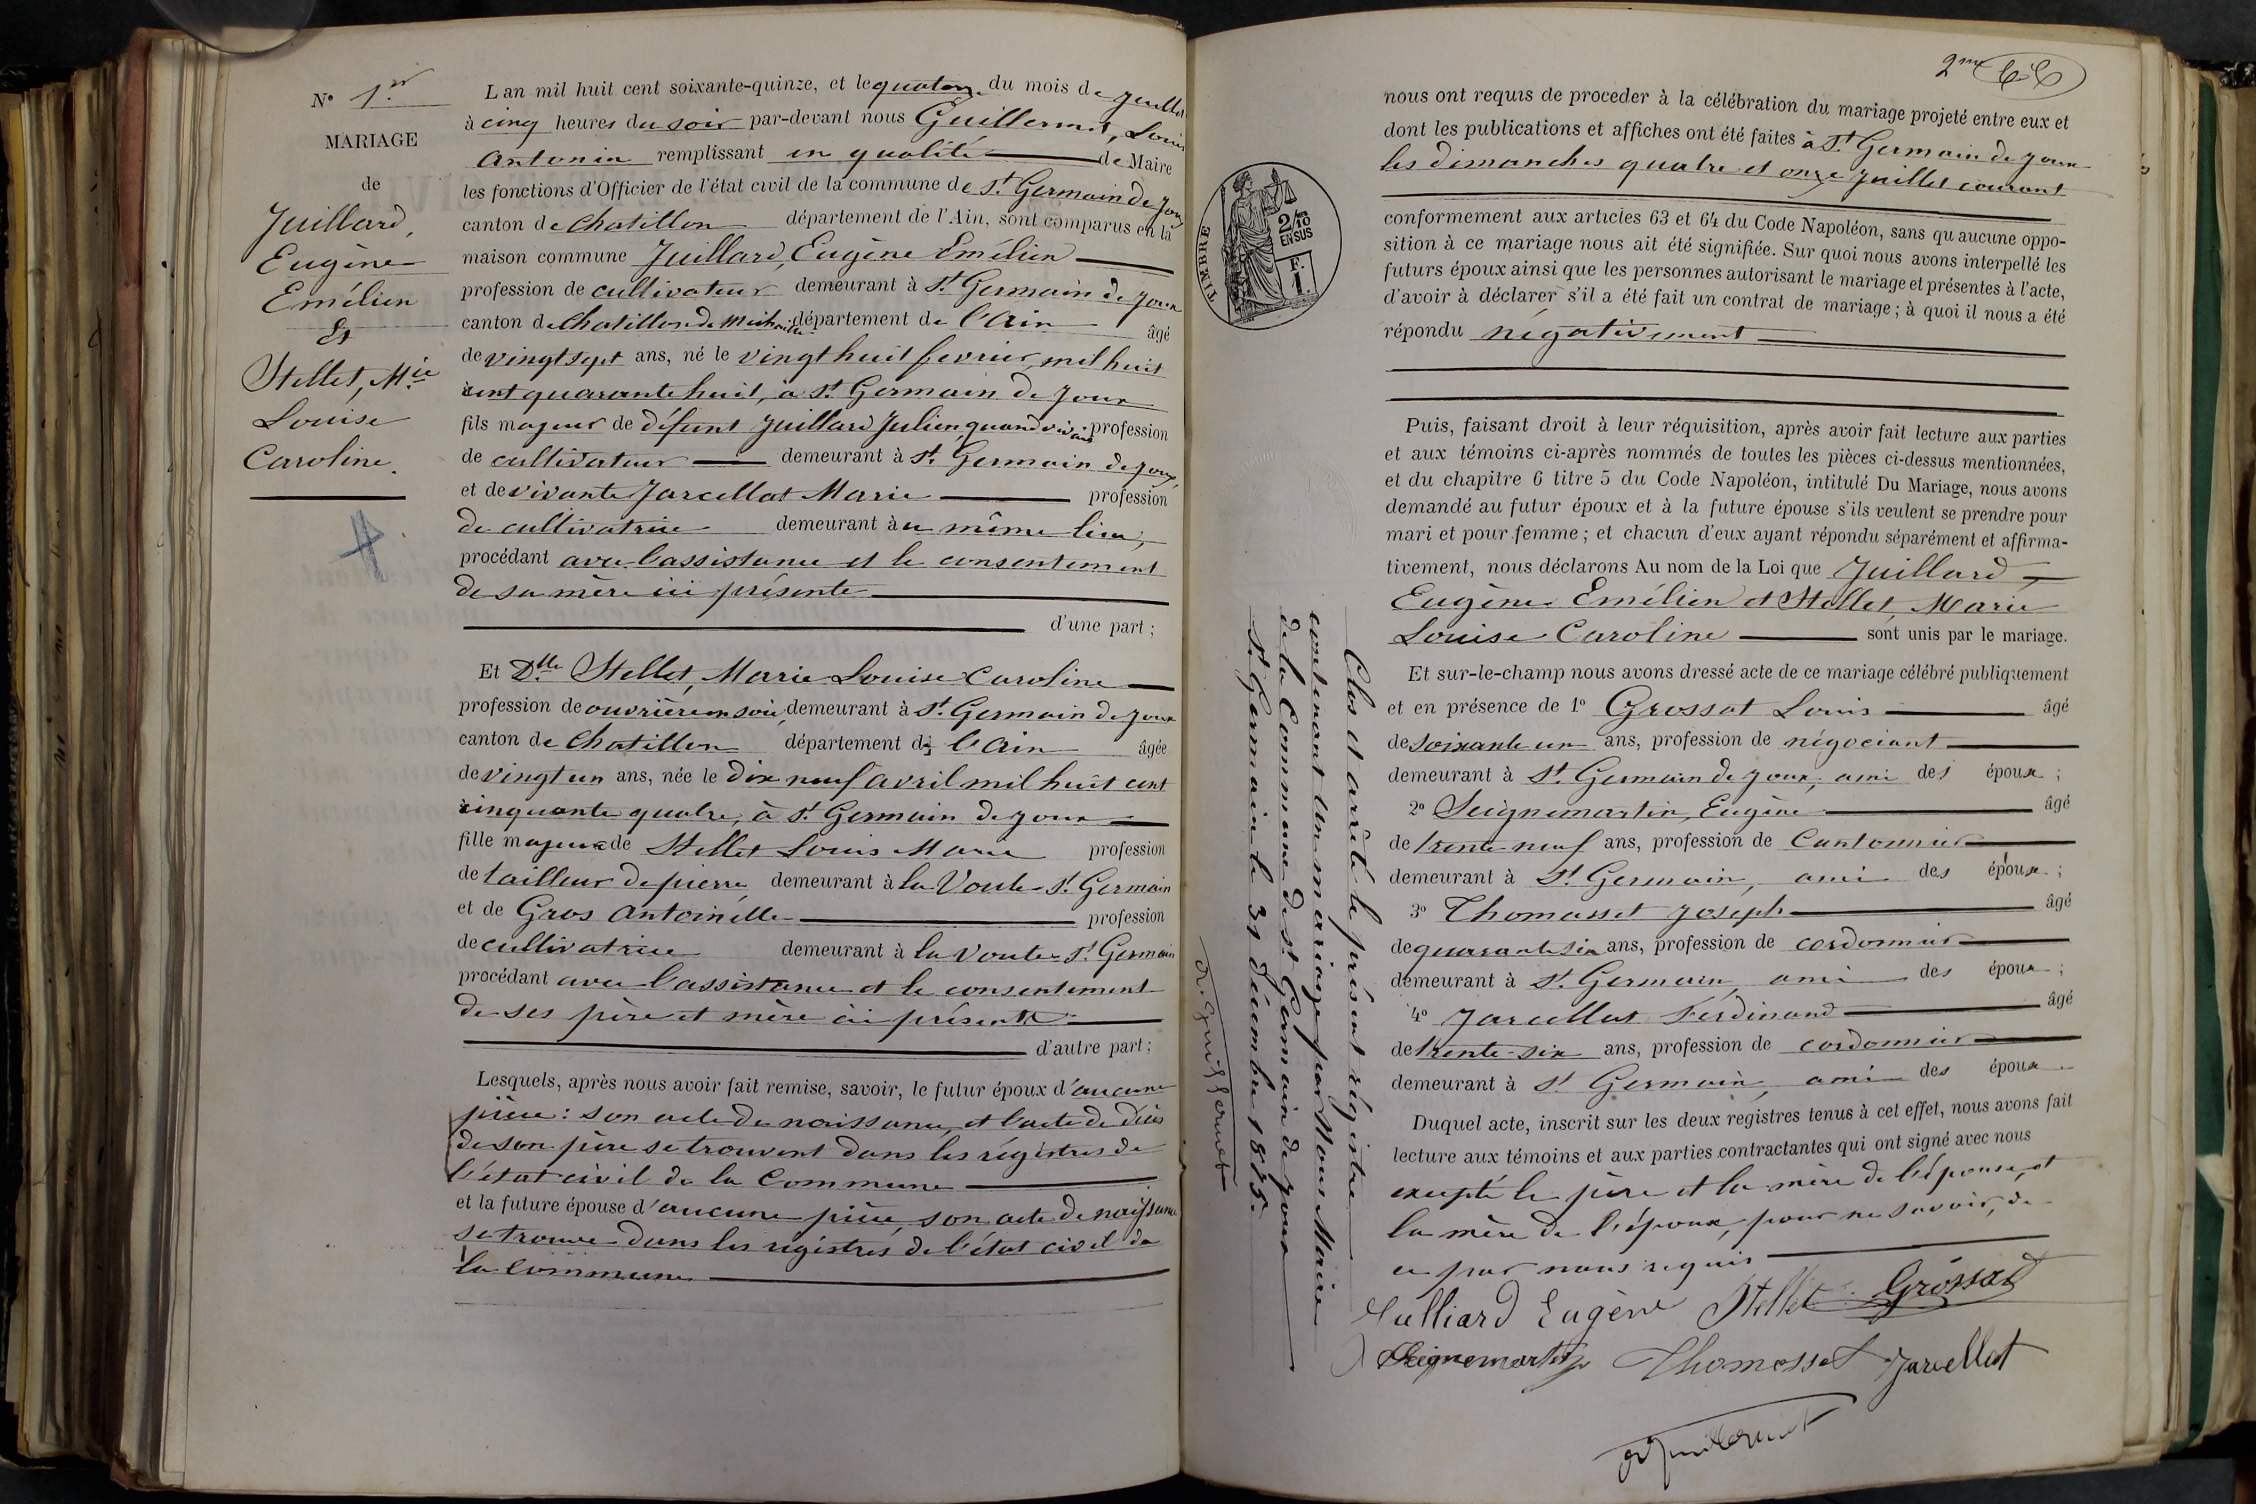 N° 1er
MARIAGE
de
Juillard,
Eugène
Emélien
&
Stellet, Mie
Louise
Caroline.
L'an mil huit cent soixante-quinze, et le quatorze du mois de juillet
à cinq heures du soir par-devant nous Guillermet, Louis
Antonin remplissant en qualité de Maire
les fonctions d'Officier de l'état civil de la commune de St Germain de Joux
canton de Chatillon département de l'Ain, sont comparus en la
maison commune Juillard, Eugène Emélien
profession de cultivateur demeurant à St Germain de Joux
canton de Chatillon de Michaille département de l'Ain âgé
de vingt sept ans, né le vingt huit fevrier mil huit
cent quarante huit, à St Germain de Joux
fils majeur de défunt Juillard Julien, quand vivait profession
de cultivateur demeurant à St Germain de Joux,
et de vivante Jarcellat Marie profession
de cultivatrice demeurant au même lieu,
procédant avec l'assistance et le consentement
de sa mère ici présente
d'une part ;
Et Dlle Stellet, Marie Louise Caroline
profession de ouvrière en soie, demeurant à St Germain de Joux
canton de Chatillon département de l'Ain âgée
de vingt un ans, née le dix neuf avril mil huit cent
cinquante quatre, à St Germain de Joux
fille majeure de Stellet Louis Marie profession
de tailleur de pierre, demeurant à la Voute St Germain
et de Gros Antoinette profession
de cultivatrice demeurant à la Voute St Germain
procédant avec l'assistance et le consentement
de ses père et mère ici présents
d'autre part ;
Lesquels, après nous avoir fait remise, savoir, le futur époux d'aucune
pièce : son acte de naissance, et l'acte de décès
de son père se trouvent dans les régistres de
l'état civil de la Commune
et la future épouse d'aucune pièce, son acte de naissance
se trouve dans les régistres de l'état civil de
la commune
2me
66
nous ont requis de proceder à la célébration du mariage projeté entre eux et
dont les publications et affiches ont été faites à St Germain de Joux
les dimanches quatre et onze juillet courant
conformement aux articles 63 et 64 du Code Napoléon, sans qu'aucune oppo-
sition à ce mariage nous ait été signifiée. Sur quoi nous avons interpellé les
futurs époux ainsi que les personnes autorisant le mariage et présentes à l'acte,
d'avoir à déclarer s'il a été fait un contrat de mariage ; à quoi il nous a été
répondu négativement
Puis, faisant droit à leur réquisition, après avoir fait lecture aux parties
et aux témoins ci-après nommés de toutes les pièces ci-dessus mentionnées,
et du chapitre 6 titre 5 du Code Napoléon, intitulé Du Mariage, nous avons
demandé au futur époux et à la future épouse s'ils veulent se prendre pour
mari et pour femme ; et chacun d'eux ayant répondu séparément et affirma-
tivement, nous déclarons Au nom de la Loi que Juillard
Eugène Emélien et Stellet, Marie
Louise Caroline sont unis par le mariage.
Et sur-le-champ nous avons dressé acte de ce mariage célébré publiquement
et en présence de 1° Grossat Louis âgé
de soixante un ans, profession de négociant
demeurant à St Germain de Joux, ami des époux ;
2° Seignemartin, Eugène âgé
de trente neuf ans, profession de Cantonnier
demeurant à St Germain, ami des époux ;
3° Thomasset Joseph âgé
de quarante six ans, profession de cordonnier
demeurant à St Germain, ami des époux ;
4° Jarcellat Ferdinand âgé
de trente-six ans, profession de cordonnier
demeurant à St Germain, ami des époux
Duquel acte, inscrit sur les deux registres tenus à cet effet, nous avons fait
lecture aux témoins et aux parties contractantes qui ont signé avec nous
excepté le père et la mère de l'épouse, et
la mère de l'époux, pour ne savoir, de
ce par nous requis
Juilliard Eugène Stellet Grossat
Seignemartin Thomasset Jarcellat
Guillermet
TIMBRE
2/10
EN SUS
F.
1.
Clos et arrêté le présent régistre
contenant un mariage par Nous Maire
de la Commune de St Germain de Joux
St Germain le 31 décembre 1875.
Guillermet